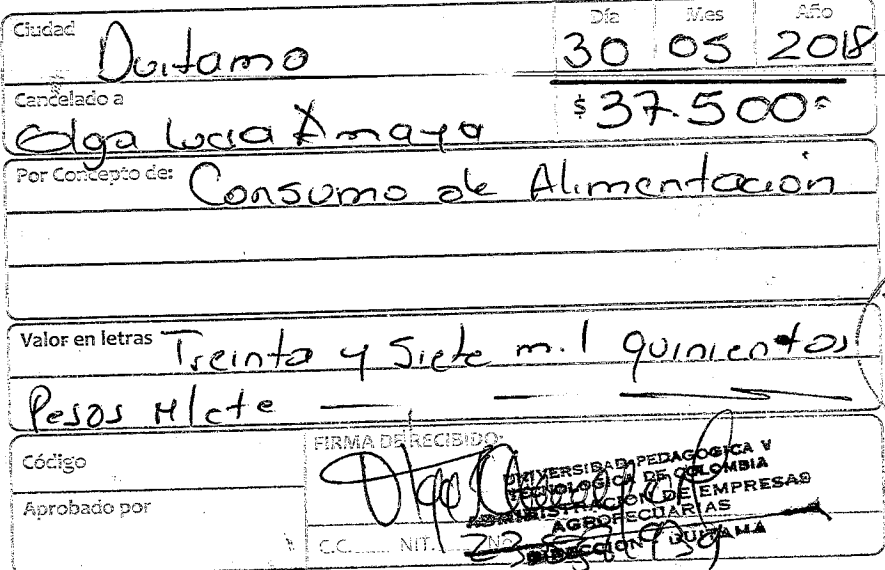 Ciudad Duitama
Día Mes Año
30 05 2018
Cancelado a Olga Lucia Amaya
$ 37.500=
Por Concepto de: Consumo de Alimentación
Valor en letras Treinta y Siete mil quinientos
Pesos M/cte
Código
FIRMA DE RECIBIDO:
Aprobado por
UNIVERSIDAD PEDAGOGICA Y
TECNOLOGICA DE COLOMBIA
ADMINISTRACION DE EMPRESAS
AGROPECUARIAS
DIRECCION DUITAMA
C.C. NIT. No.